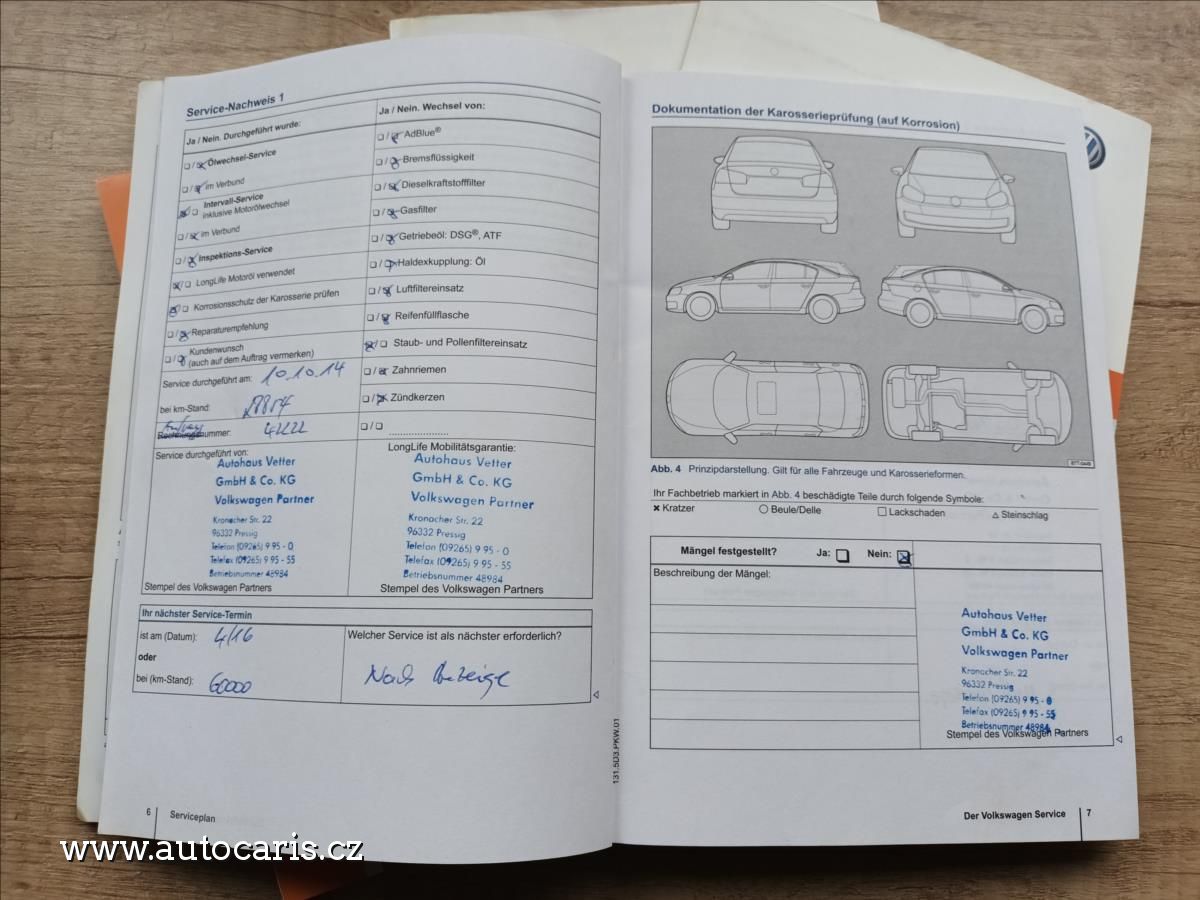 Service-Nachweis 1
Ja / Nein. Durchgeführt wurde:
Ölwechsel-Service
im Verbund
Intervall-Service
inklusive Motorölwechsel
im Verbund
Inspektions-Service
LongLife Motoröl verwendet
Korrosionsschutz der Karosserie prüfen
Reparaturempfehlung
Kundenwunsch
(auch auf dem Auftrag vermerken)
Service durchgeführt am: 10.10.14
bei km-Stand:
nummer:
Service durchgeführt von:
Autohaus Vetter
GmbH & Co. KG
Volkswagen Partner
Kronacher Str. 22
96332 Pressig
Telefon (09265) 9 95 - 0
Telefax (09265) 9 95 - 55
Betriebsnummer 48984
Stempel des Volkswagen Partners
Ja / Nein. Wechsel von:
AdBlue®
Bremsflüssigkeit
Dieselkraftstofffilter
Gasfilter
Getriebeöl: DSG®, ATF
Haldexkupplung: Öl
Luftfiltereinsatz
Reifenfüllflasche
Staub- und Pollenfiltereinsatz
Zahnriemen
Zündkerzen
LongLife Mobilitätsgarantie:
Autohaus Vetter
GmbH & Co. KG
Volkswagen Partner
Kronacher Str. 22
96332 Pressig
Telefon (09265) 9 95 - 0
Telefax (09265) 9 95 - 55
Betriebsnummer 48984
Stempel des Volkswagen Partners
Ihr nächster Service-Termin
ist am (Datum): 4/16
oder
bei (km-Stand): 60000
Welcher Service ist als nächster erforderlich?
Nach Anzeige
131.5D3.PKW.01
6 Serviceplan
Dokumentation der Karosserieprüfung (auf Korrosion)
Abb. 4 Prinzipdarstellung. Gilt für alle Fahrzeuge und Karosserieformen.
Ihr Fachbetrieb markiert in Abb. 4 beschädigte Teile durch folgende Symbole:
Kratzer Beule/Delle Lackschaden Steinschlag
Mängel festgestellt? Ja: Nein:
Beschreibung der Mängel:
Autohaus Vetter
GmbH & Co. KG
Volkswagen Partner
Kronacher Str. 22
96332 Pressig
Telefon (09265) 9 95 - 0
Telefax (09265) 9 95 - 55
Betriebsnummer 48984
Stempel des Volkswagen Partners
Der Volkswagen Service 7
www.autocaris.cz